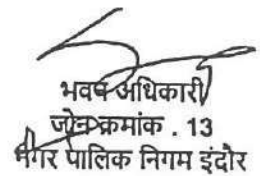 भवन अधिकारी
जोन क्रमांक . 13
नगर पालिक निगम इंदौर